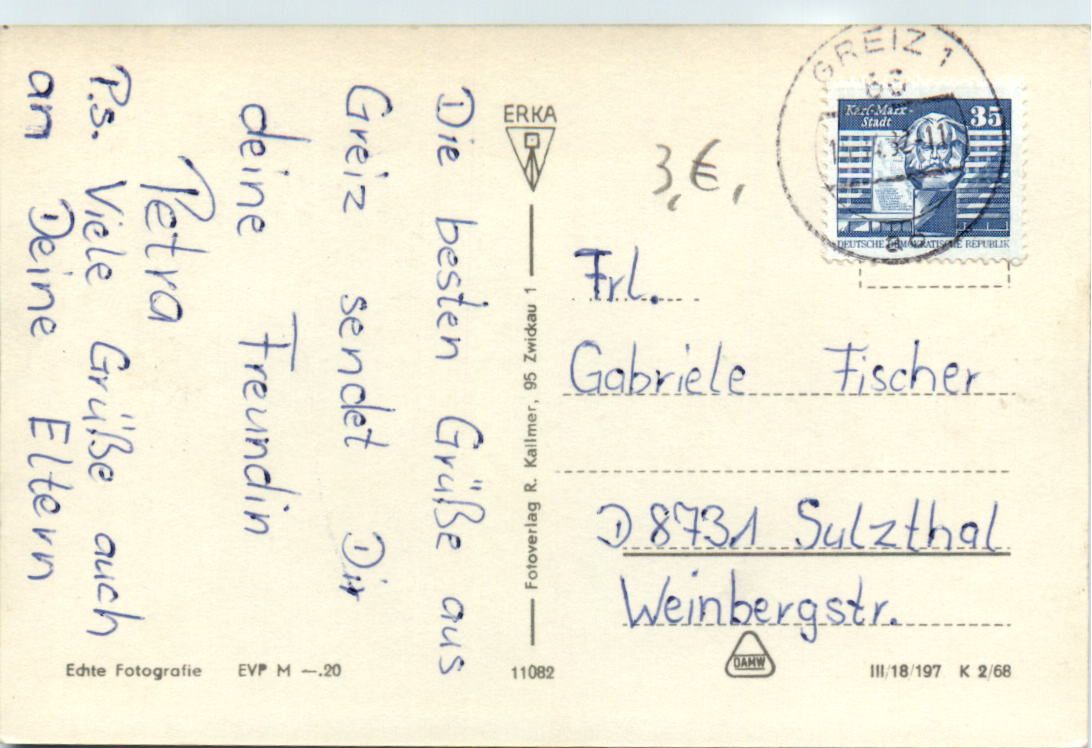 Die besten Grüße aus
Greiz sendet Dir
deine Freundin
Petra
P.s. Viele Grüße auch
an Deine Eltern
Echte Fotografie EVP M —.20
ERKA
Fotoverlag R. Kallmer, 95 Zwickau 1
11082
3,€,
GREIZ 1
66
Karl-Marx-
Stadt
35
DEUTSCHE DEMOKRATISCHE REPUBLIK
Frl.
Gabriele Fischer
D 8731 Sulzthal
Weinbergstr.
DAMW
III/18/197 K 2/68